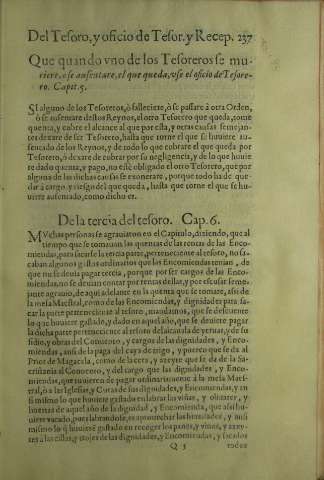 Del Tesoro, y oficio de Tesor. y Recep. 237
Que quando vno de los Tesoreros se mu-
riere, o se ausentare, el que queda, vse el oficio de Tesore-
ro. Capit. 5.
SI alguno de los Tesoreros, ò fallecière, ò se passare à otra Orden,
ò se ausentare destos Reynos, el otro Tesorero que queda, tome
quenta, y cobre el alcance al que por esta, y otras causas semejan-
tes dexare de ser Tesorero, hasta que torne el que se huuiere au-
sentado de los Reynos, y de todo lo que cobrare el que queda por
Tesorero, ò dexare de cobrar por su negligencia, y de lo que huuie
re dado quenta, y pago, no esté obligado el otro Tesorero, que por
alguna de las dichas causas se exonerare, porque todo ha de que-
dar à cargo, y riesgo del que queda, hasta que torne el que se hu-
uiere ausentado, como dicho es.
De la tercia del tesoro. Cap. 6.
MVchas personas se agrauiaron en el Capitulo, diziendo, que al
tiempo que se tomauan las quentas de las rentas de las Enco-
miendas, para sacarse la tercia parte, perteneciente al tesoro, no sa-
caban algunos gastos ordinarios que las Encomiendas tenian, de
que no se deuia pagar tercia, porque por ser cargos de las Enco-
miendas, no se deuian contar por rentas dellas, y por escusar seme-
jante agrauio, de aqui adelante en la quenta que se tomare, assi de
la mesa Maestral, como de las Encomiendas, y dignidades para sa-
car la parte perteneciente al tesoro, mandamos, que se desquente
lo que huuiere gastado, y dado en aquel año, que se deuiere pagar
la dicha parte perteneciente al tesoro del alcauala de yeruas, y de su
sidio, y obras del Conuento, y cargos de las dignidades, y Enco-
miendas, assi de la paga del cayz de trigo, y puerco que se da al
Prior de Magacela, como de la cera, y azeyte que se da de la Sa-
cristania al Conuento, y del cargo que las dignidades, y Enco-
miendas, que tuuieren de pagar ordinariamente à la mesa Maes-
tral, ò a las Iglesias, y Curas de sus dignidades, y Encomiendas, y an
si mismo lo que huuiere gastado en labrar las viñas, y oliuares, y
huertas de aquel año de la dignidad, y Encomienda, que assi hu-
uiere vacado, pues labrandose, es aprouechar los heredades, y ansi
mismo lo que huuiere gastado en recoger los panes, y vinos, y azey-
tes a las cillas, y troxes de las dignidades, y Encomiendas, y sacados
Q 5 todos